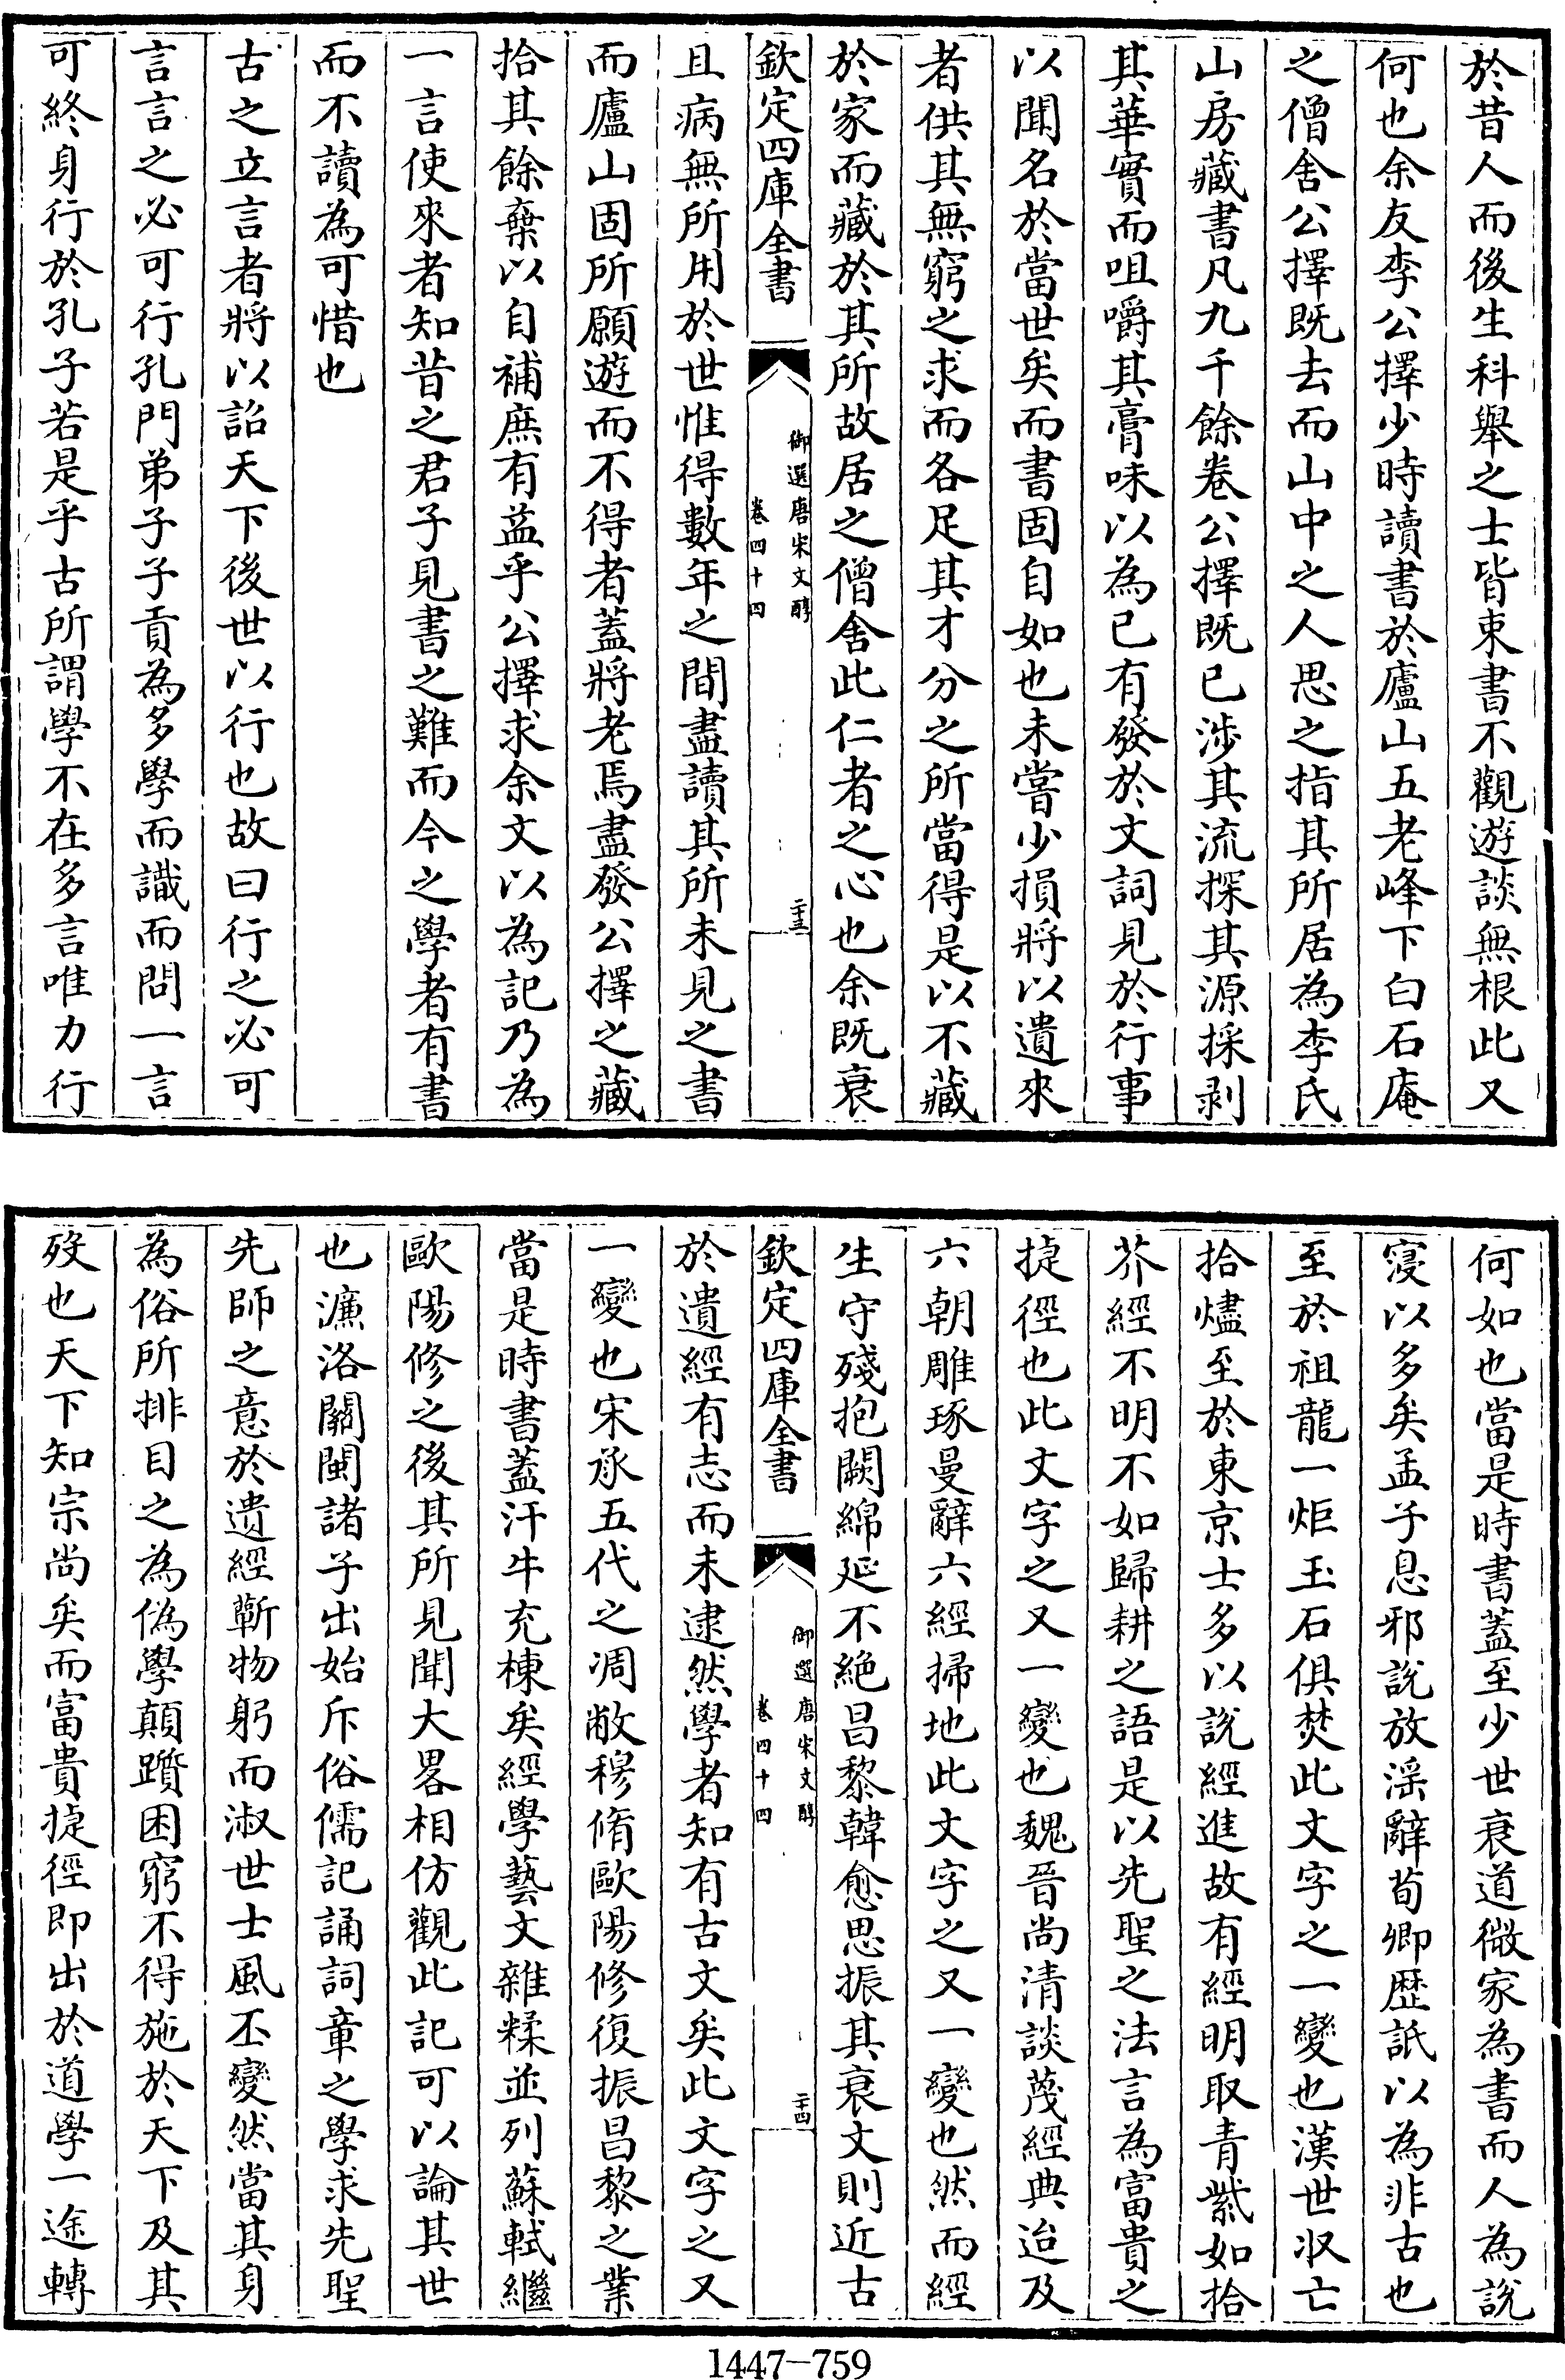 於昔人而後生科舉之士皆束書不觀遊談無根此又
何也余友李公擇少時讀書於廬山五老峰下白石庵
之僧舍公擇既去而山中之人思之指其所居為李氏
山房藏書凡九千餘卷公擇既已涉其流探其源採剥
其華實而咀嚼其膏味以為己有發於文詞見於行事
以聞名於當世矣而書固自如也未嘗少損將以遺來
者供其無窮之求而各足其才分之所當得是以不藏
於家而藏於其所故居之僧舍此仁者之心也余既衰
欽定四庫全書
御選唐宋文醇
卷四十四
二十三
且病無所用於世惟得數年之間盡讀其所未見之書
而廬山固所願遊而不得者蓋將老焉盡發公擇之藏
拾其餘棄以自補庶有益乎公擇求余文以為記乃為
一言使來者知昔之君子見書之難而今之學者有書
而不讀為可惜也
古之立言者將以詔天下後世以行也故曰行之必可
言言之必可行孔門弟子子貢為多學而識而問一言
可終身行於孔子若是乎古所謂學不在多言唯力行
何如也當是時書蓋至少世衰道微家為書而人為說
寖以多矣孟子息邪說放淫辭荀卿歷詆以為非古也
至於祖龍一炬玉石俱焚此文字之一變也漢世收亡
拾燼至於東京士多以說經進故有經明取青紫如拾
芥經不明不如歸耕之語是以先聖之法言為富貴之
捷徑也此文字之又一變也魏晉尚清談蔑經典迨及
六朝雕琢曼辭六經掃地此文字之又一變也然而經
生守殘抱闕綿延不絕昌黎韓愈思振其衰文則近古
欽定四庫全書
御選唐宋文醇
卷四十四
二十四
於遺經有志而未逮然學者知有古文矣此文字之又
一變也宋承五代之凋敝穆脩歐陽修復振昌黎之業
當是時書蓋汗牛充棟矣經學藝文雜糅並列蘇軾繼
歐陽修之後其所見聞大畧相仿觀此記可以論其世
也濂洛關閩諸子出始斥俗儒記誦詞章之學求先聖
先師之意於遺經蘄物躬而淑世士風丕變然當其身
為俗所排目之為偽學顛躓困窮不得施於天下及其
歿也天下知宗尚矣而富貴捷徑即出於道學一途轉
1447—759